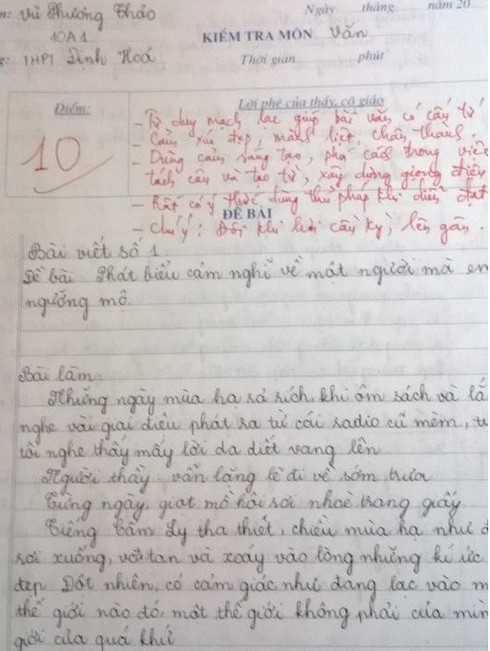 n: Vũ Phương Thảo
Ngày tháng năm 20
10A1
KIỂM TRA MÔN Văn
g: THPT Định Hoá
Thời gian phút
Điểm:
Lời phê của thầy, cô giáo
10
- Tư duy mạch lạc giúp bài văn có cấu tứ
- Cảm xúc đẹp, mãnh liệt, chân thành.
- Dũng cảm, sáng tạo, phá cách trong việc
tách câu và tạo từ, xây dựng giọng điệu
- Rất có ý thức dùng thủ pháp khi diễn đạt
- Chú ý: Đôi khi hơi cầu kỳ, lên gân.
ĐỀ BÀI
Bài viết số 1
Đề bài Phát biểu cảm nghĩ về một người mà em
ngưỡng mộ.
Bài làm:
Những ngày mùa hạ rả rích, khi ôm sách và lắ
nghe vài giai điệu phát ra từ cái radio cũ mèm, t
tôi nghe thấy mấy lời da diết vang lên
Người thầy vẫn lặng lẽ đi về sớm trưa
Từng ngày, giọt mồ hôi rơi nhoè trang giấy
Tiếng Cẩm Ly tha thiết, chiều mùa hạ như đ
rơi xuống, vỡ tan và xoáy vào lòng những kí ức
đẹp Đột nhiên, có cảm giác như đang lạc vào m
thế giới nào đó, một thế giới không phải của mìn
giới của quá khứ